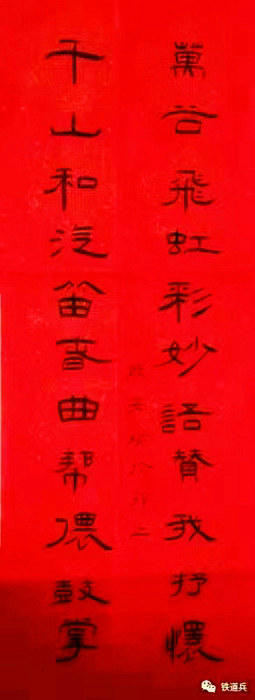 萬谷飛虹彩妙語贊我抒懷
千山和汽笛音曲帮儂鼓掌
铁道兵